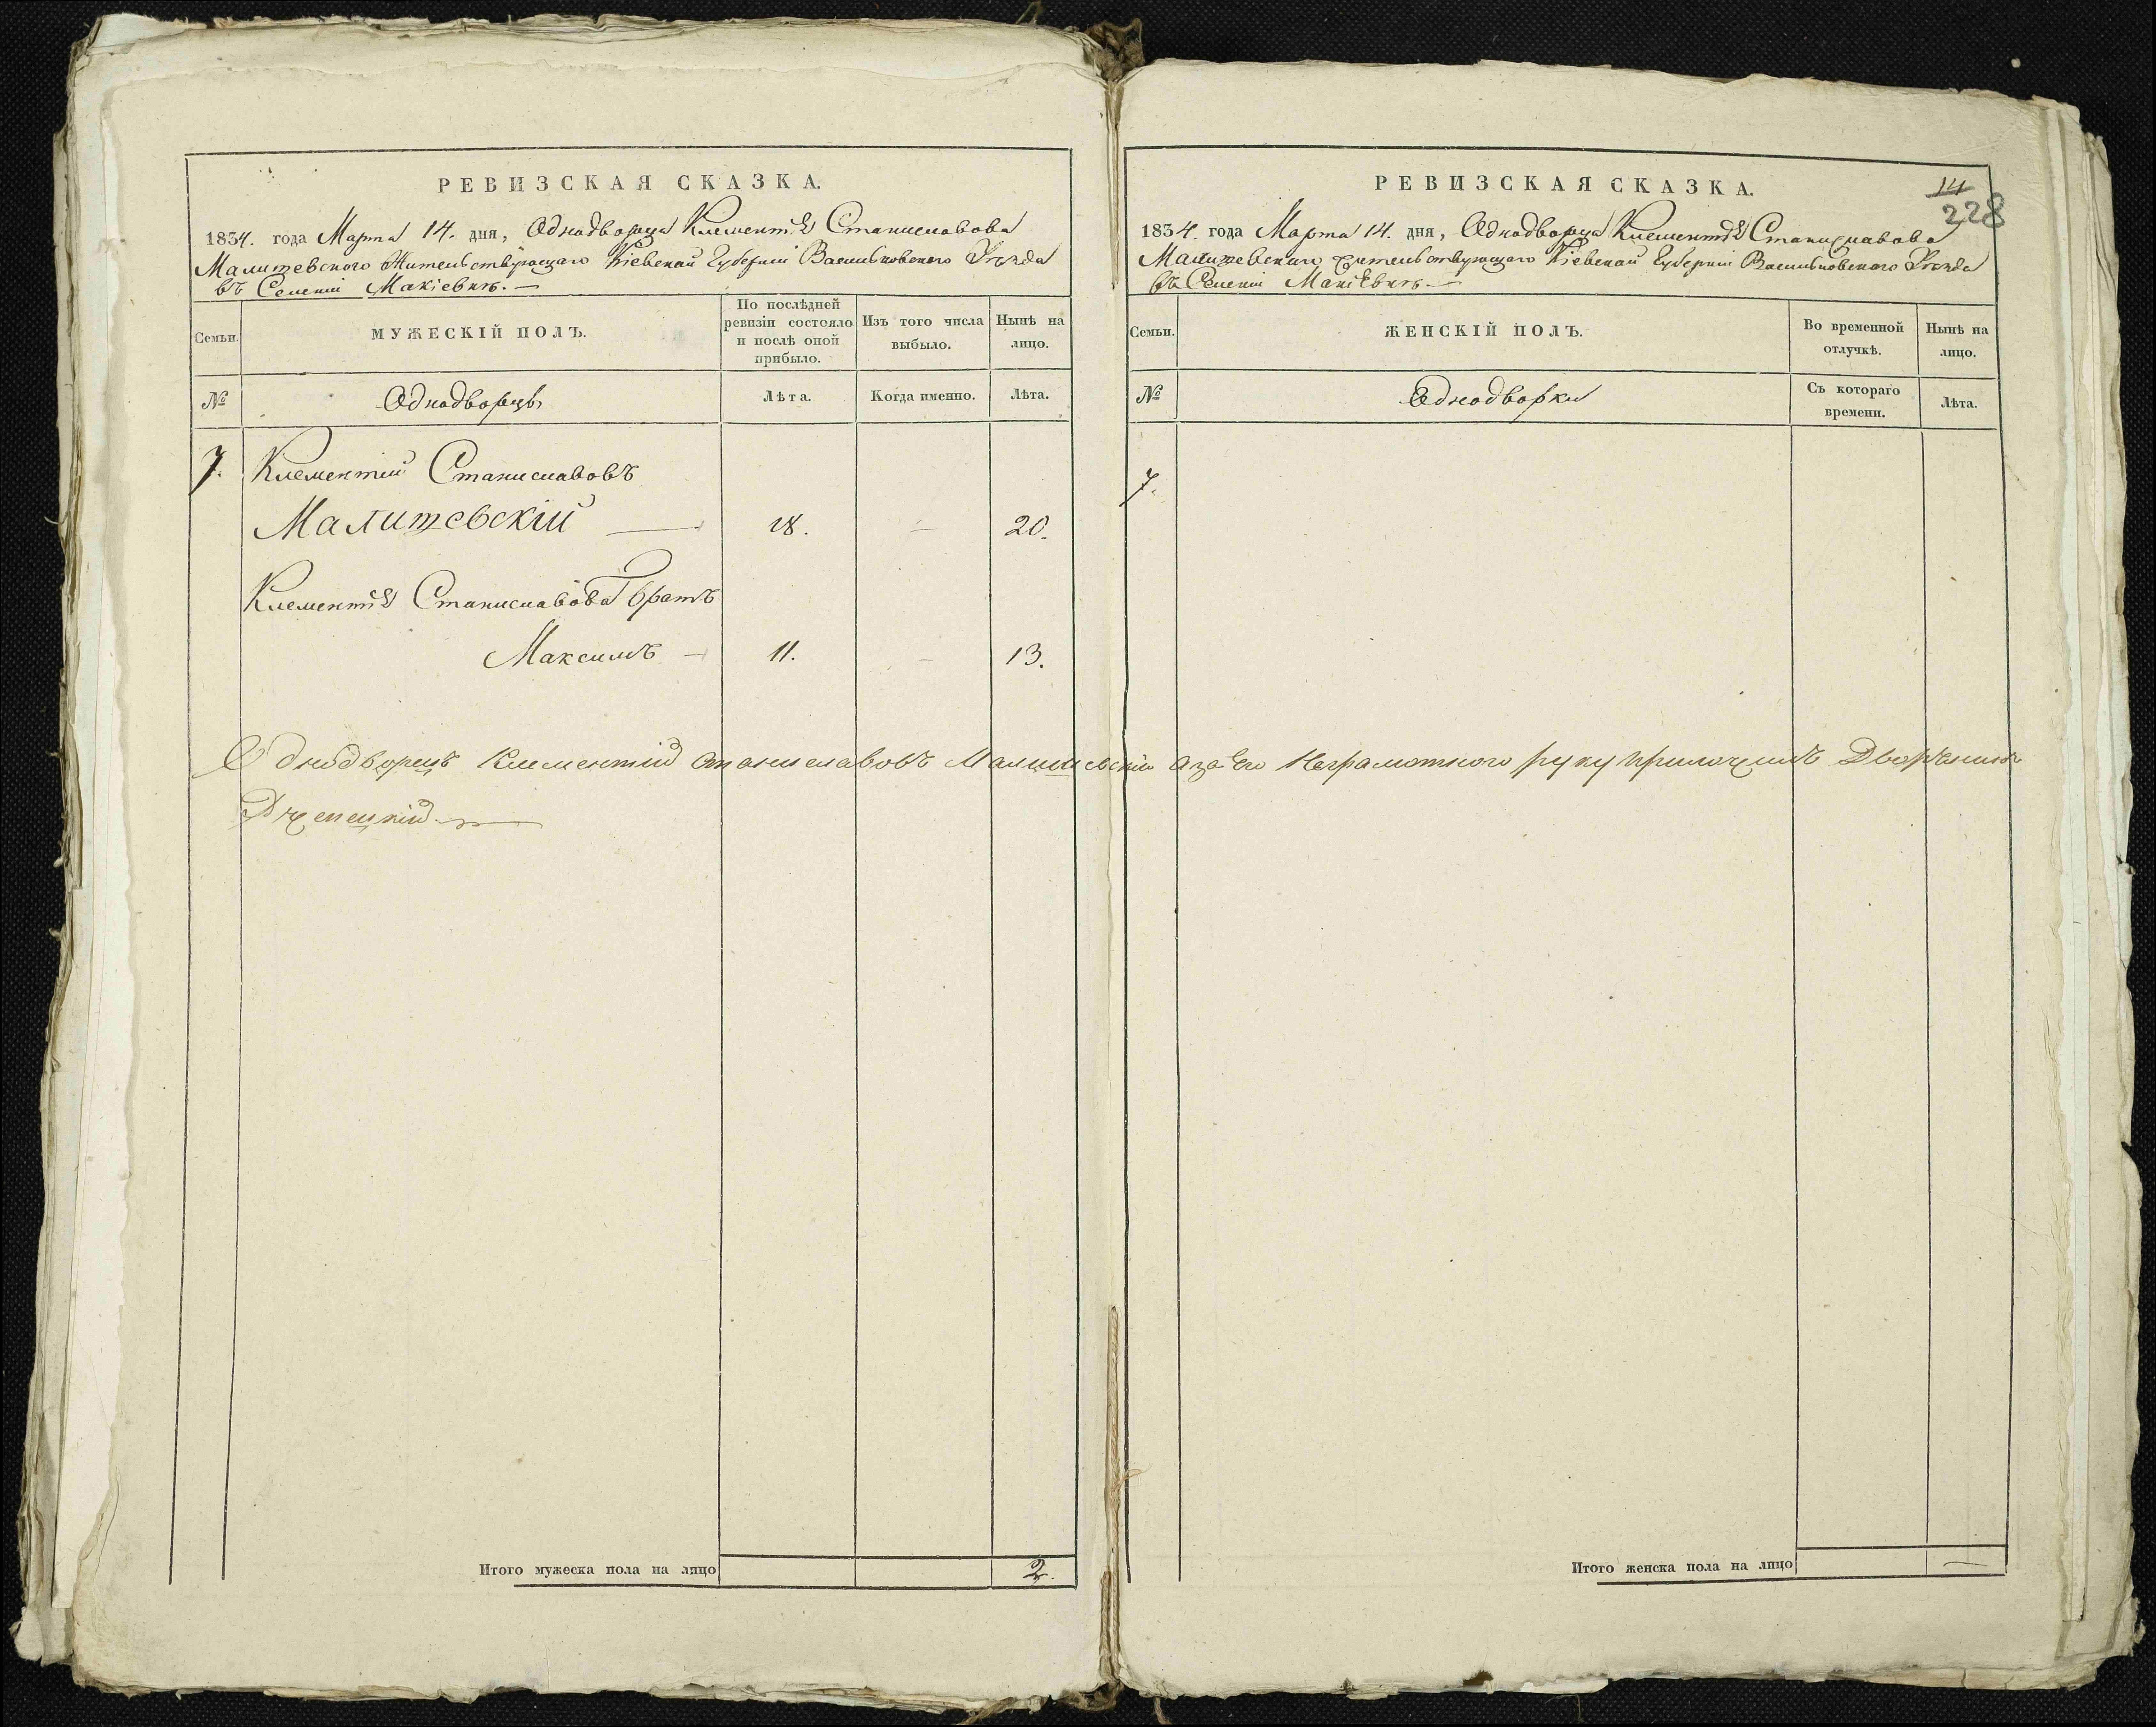 РЕВИЗСКАЯ СКАЗКА.
1834. года Марта 14. дня, Однодворца Клементія Станиславова
Малишевского Жительствующаго Кіевской Губерніи Васильковского Уезда
въ Селеніи Макіевкѣ.—
Семьи.
МУЖЕСКІЙ ПОЛЪ.
По послѣдней ревизіи состояло и послѣ оной прибыло.
Изъ того числа выбыло.
Нынѣ на лицо.
№
Однодворцы
Лѣта.
Когда именно.
Лѣта.
7. Клементій Станиславовъ
Малишевскій — 18. — 20.
Клементія Станиславова братъ
Максимъ — 11. — 13.
Итого мужеска пола на лицо 2.
РЕВИЗСКАЯ СКАЗКА.
14
228
1834. года Марта 14. дня, Однодворца Клементія Станиславова
Малишевскаго жительствующаго Кіевской Губерніи Васильковского Уезда
въ Селеніи Макіевкѣ.—
Семьи.
ЖЕНСКІЙ ПОЛЪ.
Во временной отлучкѣ.
Нынѣ на лицо.
№
Однодворки
Съ котораго времени.
Лѣта.
7.
Однодворецъ Клементій Станиславовъ Малишевскій а за Его Неграмотного руку приложилъ Дворянинъ
Итого женска пола на лицо —